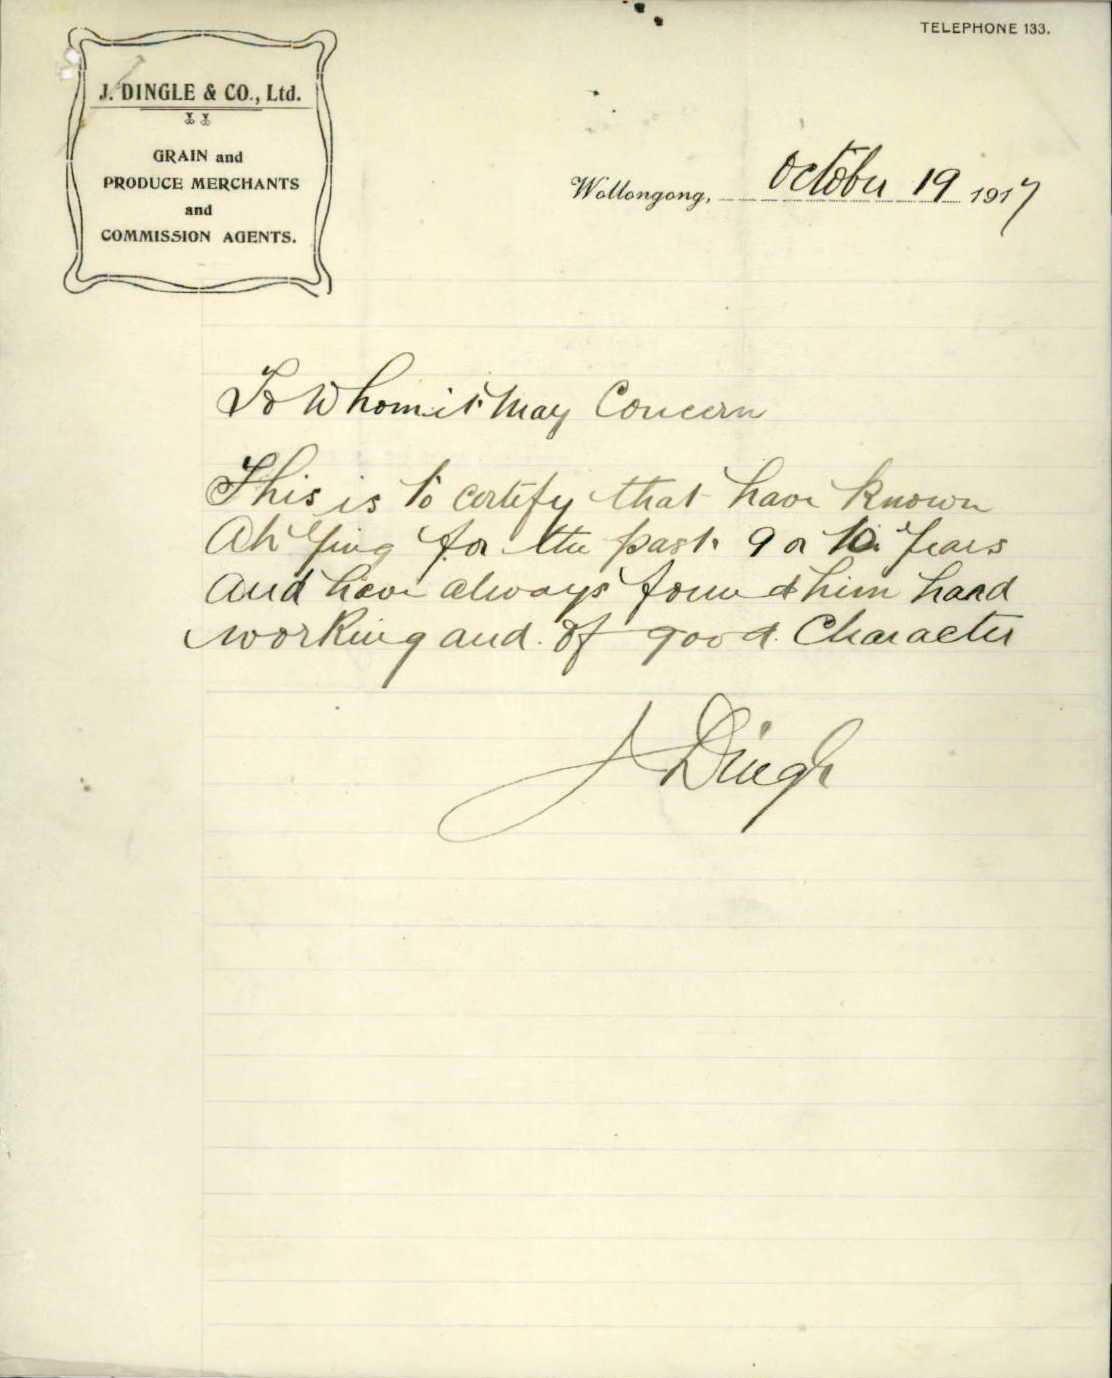 TELEPHONE 133.
J. DINGLE & CO., Ltd.
GRAIN and
PRODUCE MERCHANTS
and
COMMISSION AGENTS.
Wollongong, October 19 1917
To Whom it May Concern
This is to certify that have known
Ah Ying for the past 9 or 10 Years
And have always found him hard
working and of good Character
J Dingle